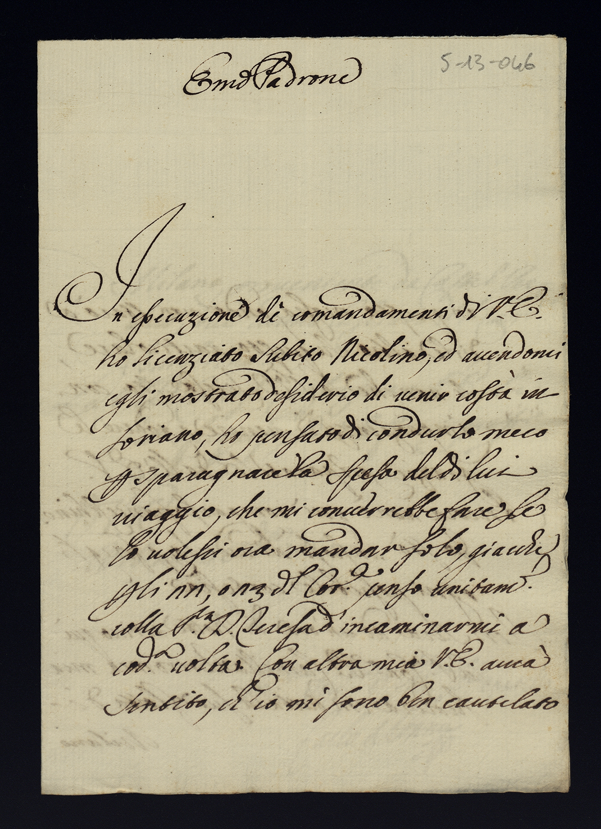 5-13-046
Em.o Padrone
In esecuzione de comandamenti di V.E.
ho licenziato subito Nicolino, ed avendomi
egli mostrato desiderio di venir costà in
Soriano, ho pensato di condurlo meco
sparagnare la spesa del di lui
viaggio, che mi converrebbe fare se
lo volessi ora mandar solo, giacche
gli 11, o 12 del Cor.e penso unitam.e
colla S.a D. Teresa d'incaminarmi a
cod.a volta. Con altra mia V.E. avrà
sentito, ch'io mi sono ben cautelato